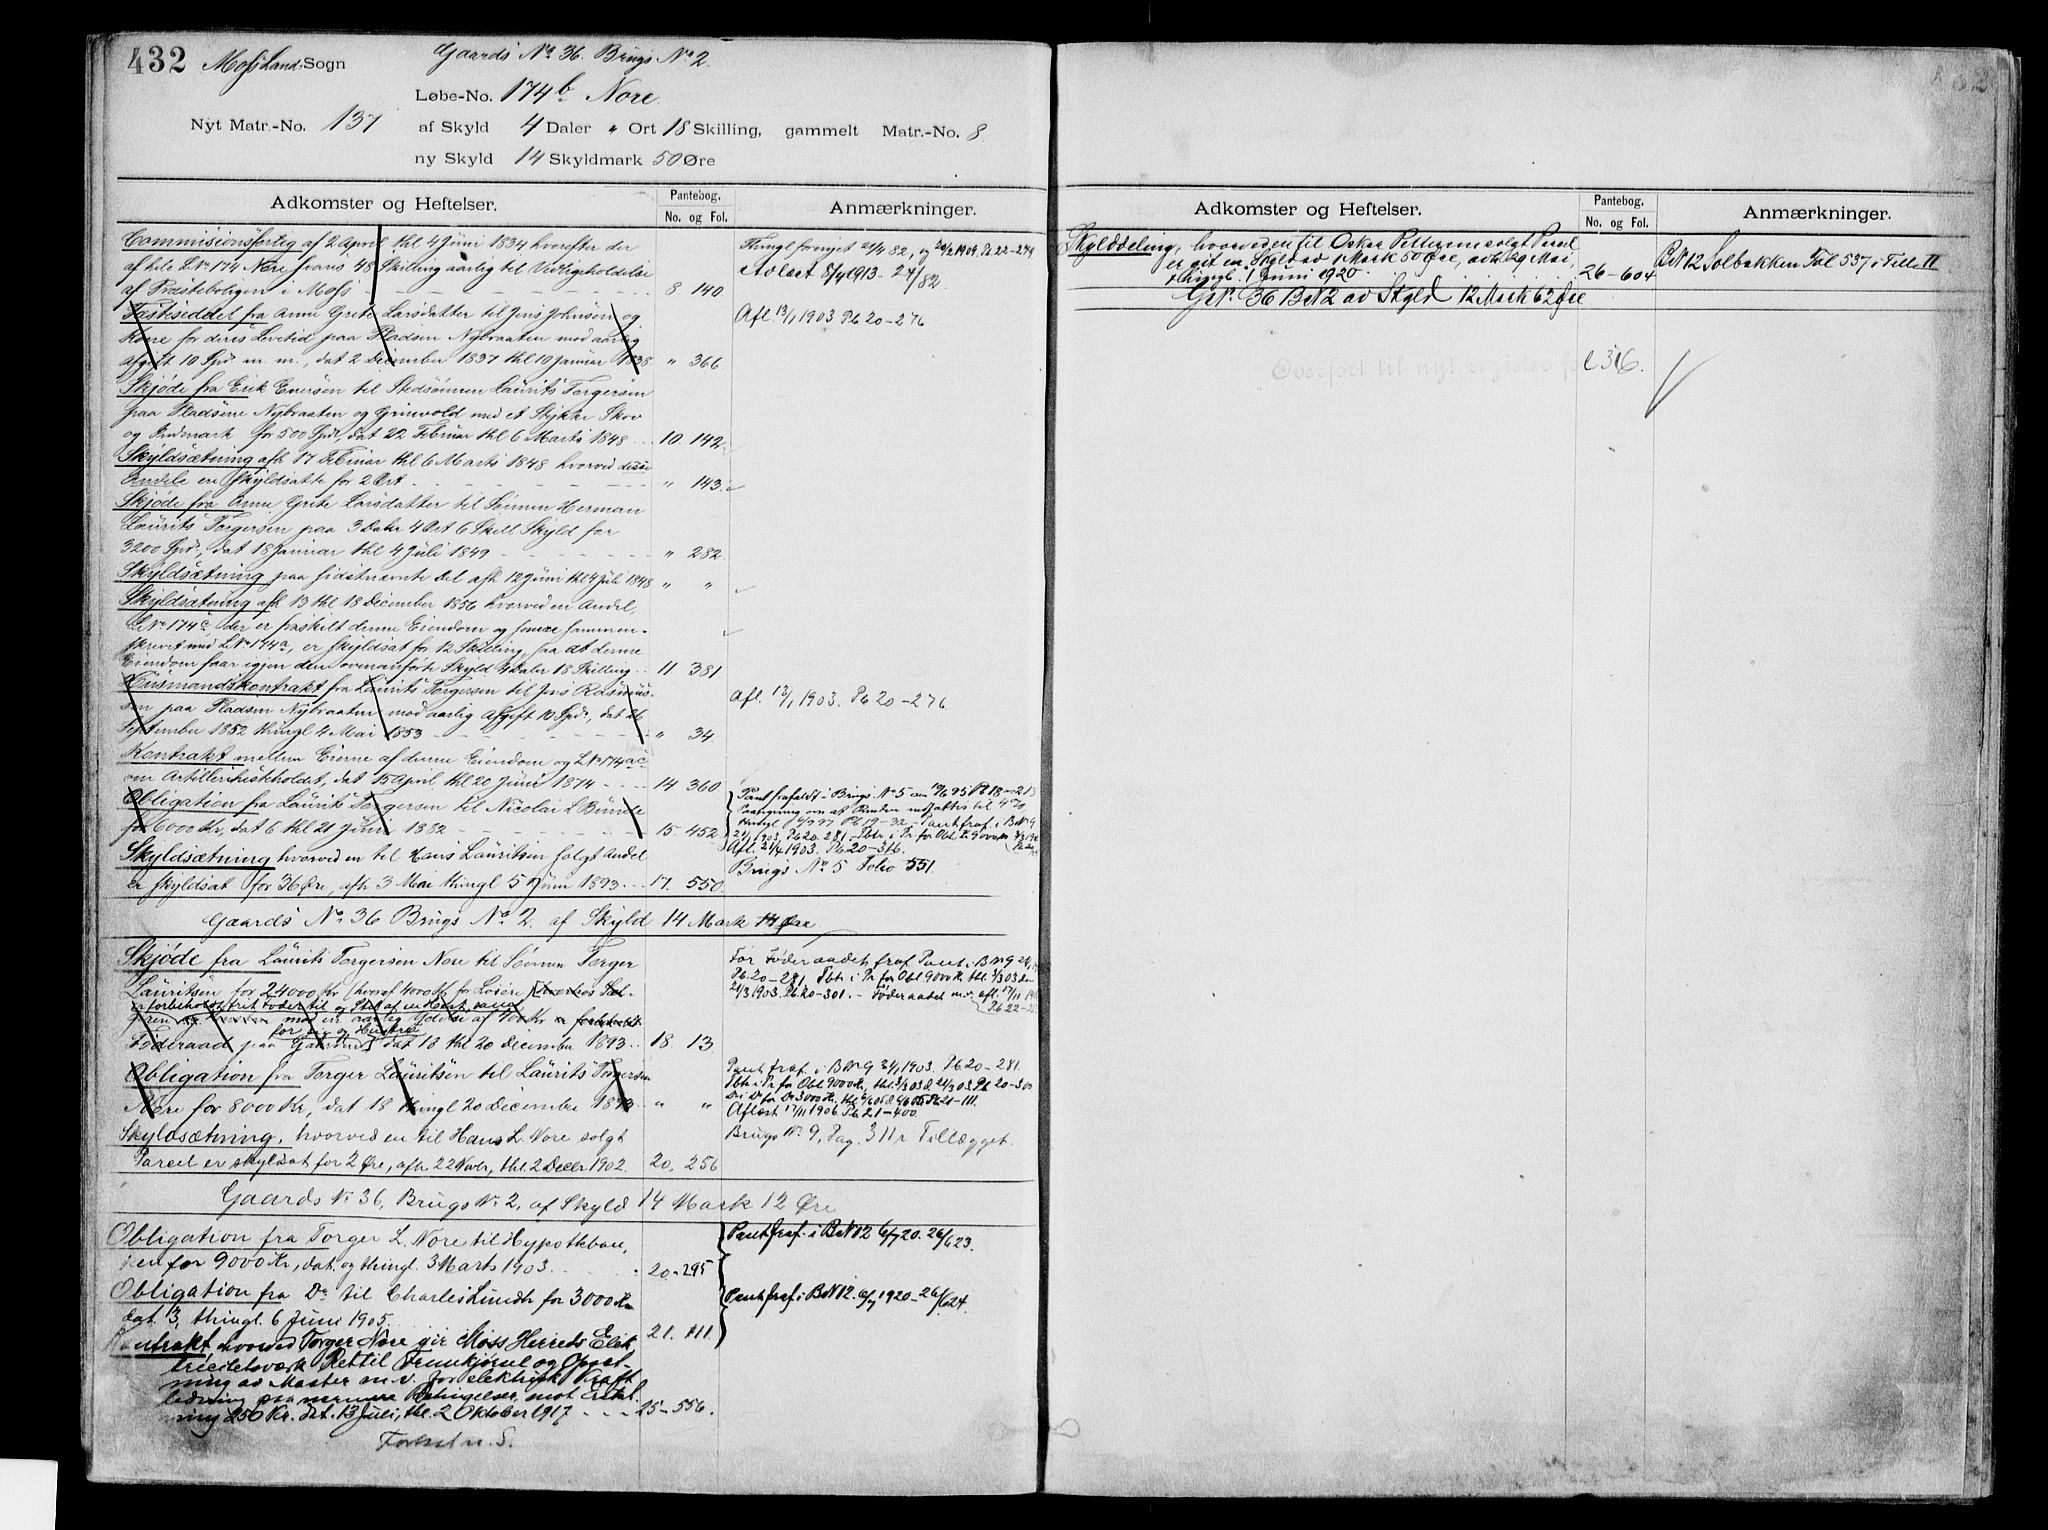 432 Moss Land-Sogn
Gaards No 36. Brugs No 2.
Løbe-No. 174 b Nore.
Nyt Matr.-No. 137 af Skyld 4 Daler " Ort 18 Skilling, gammelt Matr.-No. 8
ny Skyld 14 Skyldmark 50 Øre
Adkomster og Heftelser.
Pantebog.
No. og Fol.
Anmærkninger.
Commisionsfortig af 2 April thl 4 Juni 1834 hvorefter der
af hele L No 174 Nore svares 48 Skilling aarlig til Vedligeholdelse
af Præsteboligen i Moss 8 140
Thingl fornyet 21/4 82, og
Avlæst 8/4 1913. 24/82
Fæstesiddel fra Anne Grete Larsdatter til Jens Johnsen og
Kone for deres Levetid paa Pladsen Nybraaten mod aarlig
afgift 10 Spd. m. m., dat 2 December 1837 thl 10 Januar 1838 " 366
Afl 13/1 1903 Pb 20-276
Skjøde fra Erik Enersen til Stedsønnen Laurits Torgersen
paa Pladsene Nybraaten og Grinvold med et Stykke Skov
og Indmark for 500 Spd, dat 22 Februar thl 6 Marts 1848 10. 142
Skyldsætning afh 17 Februar thl 6 Marts 1848 hvorved disse
Andele er skyldsatte for 2 Ort " 143
Skjøde fra Anne Grete Larsdatter til Sønnen Herman
Laurits Torgersen paa 3 Daler 4 Ort 6 Skill Skyld for
3200 Spd, dat 18 Januar thl 4 Juli 1849 " 282
Skyldsætning paa sidstnævnte Del afh 12 Juni thl 4 Juli 1848 " "
Skyldsætning afh 13 thl 18 December 1856 hvorved en Andel,
L No 174 c der er fraskilt denne Eiendom og senere sammen-
skrevet med L No 174 a, er skyldsat for 12 Skilling, saa at denne
Eiendom faar igjen den ovenanførte Skyld 4 Daler 18 Skilling 11 381
Husmandskontrakt fra Laurits Torgersen til Jens Rasmus-
sen paa Pladsen Nybraaten mod aarlig Afgift 10 Spd, dat 26
September 1852 thingl 4 Mai 1853 " 34
Afl. 13/1 1903. Pb 20-276
Kontrakt mellem Eierne af denne Eiendom og L No 174 a c
om Artilleriheskholdet, dat 15 April thl 20 Juni 1874 14 360
Obligation fra Laurits Torgersen til Nicolai L Bunde
for 6000 Kr, dat 6 thl 21 Juni 1882 15 452
Pantfrafaldt i Brugs No 5 Pb 18-213
Paategning om at Renten nedsættes til 4 %
Pb 19-32 - Pantfraf. i B No 9
24/1 1903. Pb 20-281 - Pbtr i Pr for Obl K. 9000
Afl. 21/4 1903. Pb 20-316.
Skyldsætning hvorved en til Hans Lauritsen solgt Andel
er skyldsat for 36 Øre, afh 3 Mai thingl 5 Juni 1893 17. 550
Brugs No 5 Folio 551
Gaards No 36 Brugs No 2. af Skyld 14 Mark 14 Øre
Skjøde fra Laurits Torgersen Nore til Sønnen Torger
Lauritsen for 24000 Kr (hvoraf 4000 Kr for Løsøre)
Føderaad paa Gaarden, dat 18 thl 20 December 1893 18. 13
For Føderaadet fraf Pant i B No 9
Pb. 20-281 Pbtr i Pr for Obl 9000 Kr. thl 3/3 03 d
21/3 1903. Pb 20-301. - Føderaadet m.v. afl. 17/11
Obligation fra Torger Lauritsen til Laurits Torgersen
Nore for 8000 Kr, dat 18 thingl 20 December 1893 " "
Pant fraf. i B No 9 24/1 1903. Pb 20-281.
Pbtr i Pr for Obl 9000 Kr, thl 3/3 03 d. 21/3 03. Pb 20-300
Do i Do for Do 3000 Kr. Pb 21-111.
Aflæst 17/11 1906 Pb 21-400.
Skyldsætning, hvorved en til Hans L. Nore solgt
Parcel er skyldsat for 2 Øre, afh. 22 Novbr, thl. 2 Decbr 1902. 20, 256
Brugs No 9, Pag. 311 i Tillægget.
Gaards No 36, Brugs No 2, af Skyld 14 Mark 12 Øre
Obligation fra Torger L. Nore til Hypothekban-
ken for 9000 Kr, dat. og thingl. 3 Marts 1903. 20-295
Pant fraf. i B No 12 6/7 20. 26/623.
Obligation fra Do til Charles Lundh for 3000 Kr
dat. 13, thingl. 6 Juni 1905. 21. 111.
Pant fraf. i B No 12. 6/7 1920 - 26/624.
Kontrakt, hvorved Torger Nore gir Moss Herreds Elek-
tricitetsværk Ret til Fremkjørsel og Opsæt-
ning av Master m. v. for elektrisk Kraft-
ledning paa nærmere Betingelser mot Erstat-
ning 250 Kr. dat. 13 Juli, thl. 2 Oktober 1917 25-556.
Forts. n. S.
Adkomster og Heftelser.
Pantebog.
No. og Fol.
Anmærkninger.
Skylddeling, hvorved en til Oskar Pettersen solgt Parcel
er git en Skyld av 1 Mark 50 Øre, avh. 29 Mai,
thingl. 1 Juni 1920 26-604
B No 12 Solbakken Fol 537 i Till. II
G No 36 B No 2 av Skyld 12 Mark 62 Øre
Overført til nyt register 316.